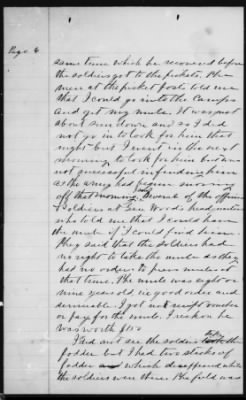 Page 6
same time which he recovered before
the soldiers got to the pickets. The
men at the picket posts told me
that I could go into the Camps
and get my mule. It was just
about sun down and so I did
not go in to look for him that
night but I went in the next
morning to look for him but was
not successful in finding him
as the army had begun moving
off that morning. I went to the officers
& soldiers at Gen Woods head quarters
who told me that I could have
the mule if I could find him.
They said that the soldiers had
no right to take the mule as they
had no orders to press mules at
that time. The mule was eight or
nine years old in good order and
serviceable. I got no receipt voucher
or pay for the mule. I reckon he
was worth $150
I did not see the soldiers take the
fodder but I had two stacks of
fodder and which disappeared while
the soldiers were there. The field was